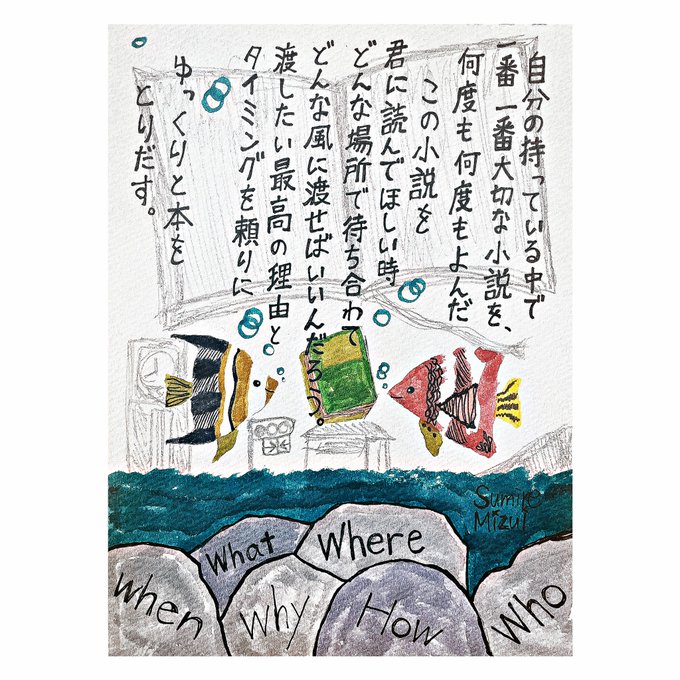 自分の持っている中で
一番一番大切な小説を、
何度も何度もよんだ
この小説を
君に読んでほしい時
どんな場所で待ち合わて
どんな風に渡せばいいんだろう。
渡したい最高の理由と
タイミングを頼りに
ゆっくりと本を
とりだす。
Sumire
Mizui
What
Where
When
Why
How
Who